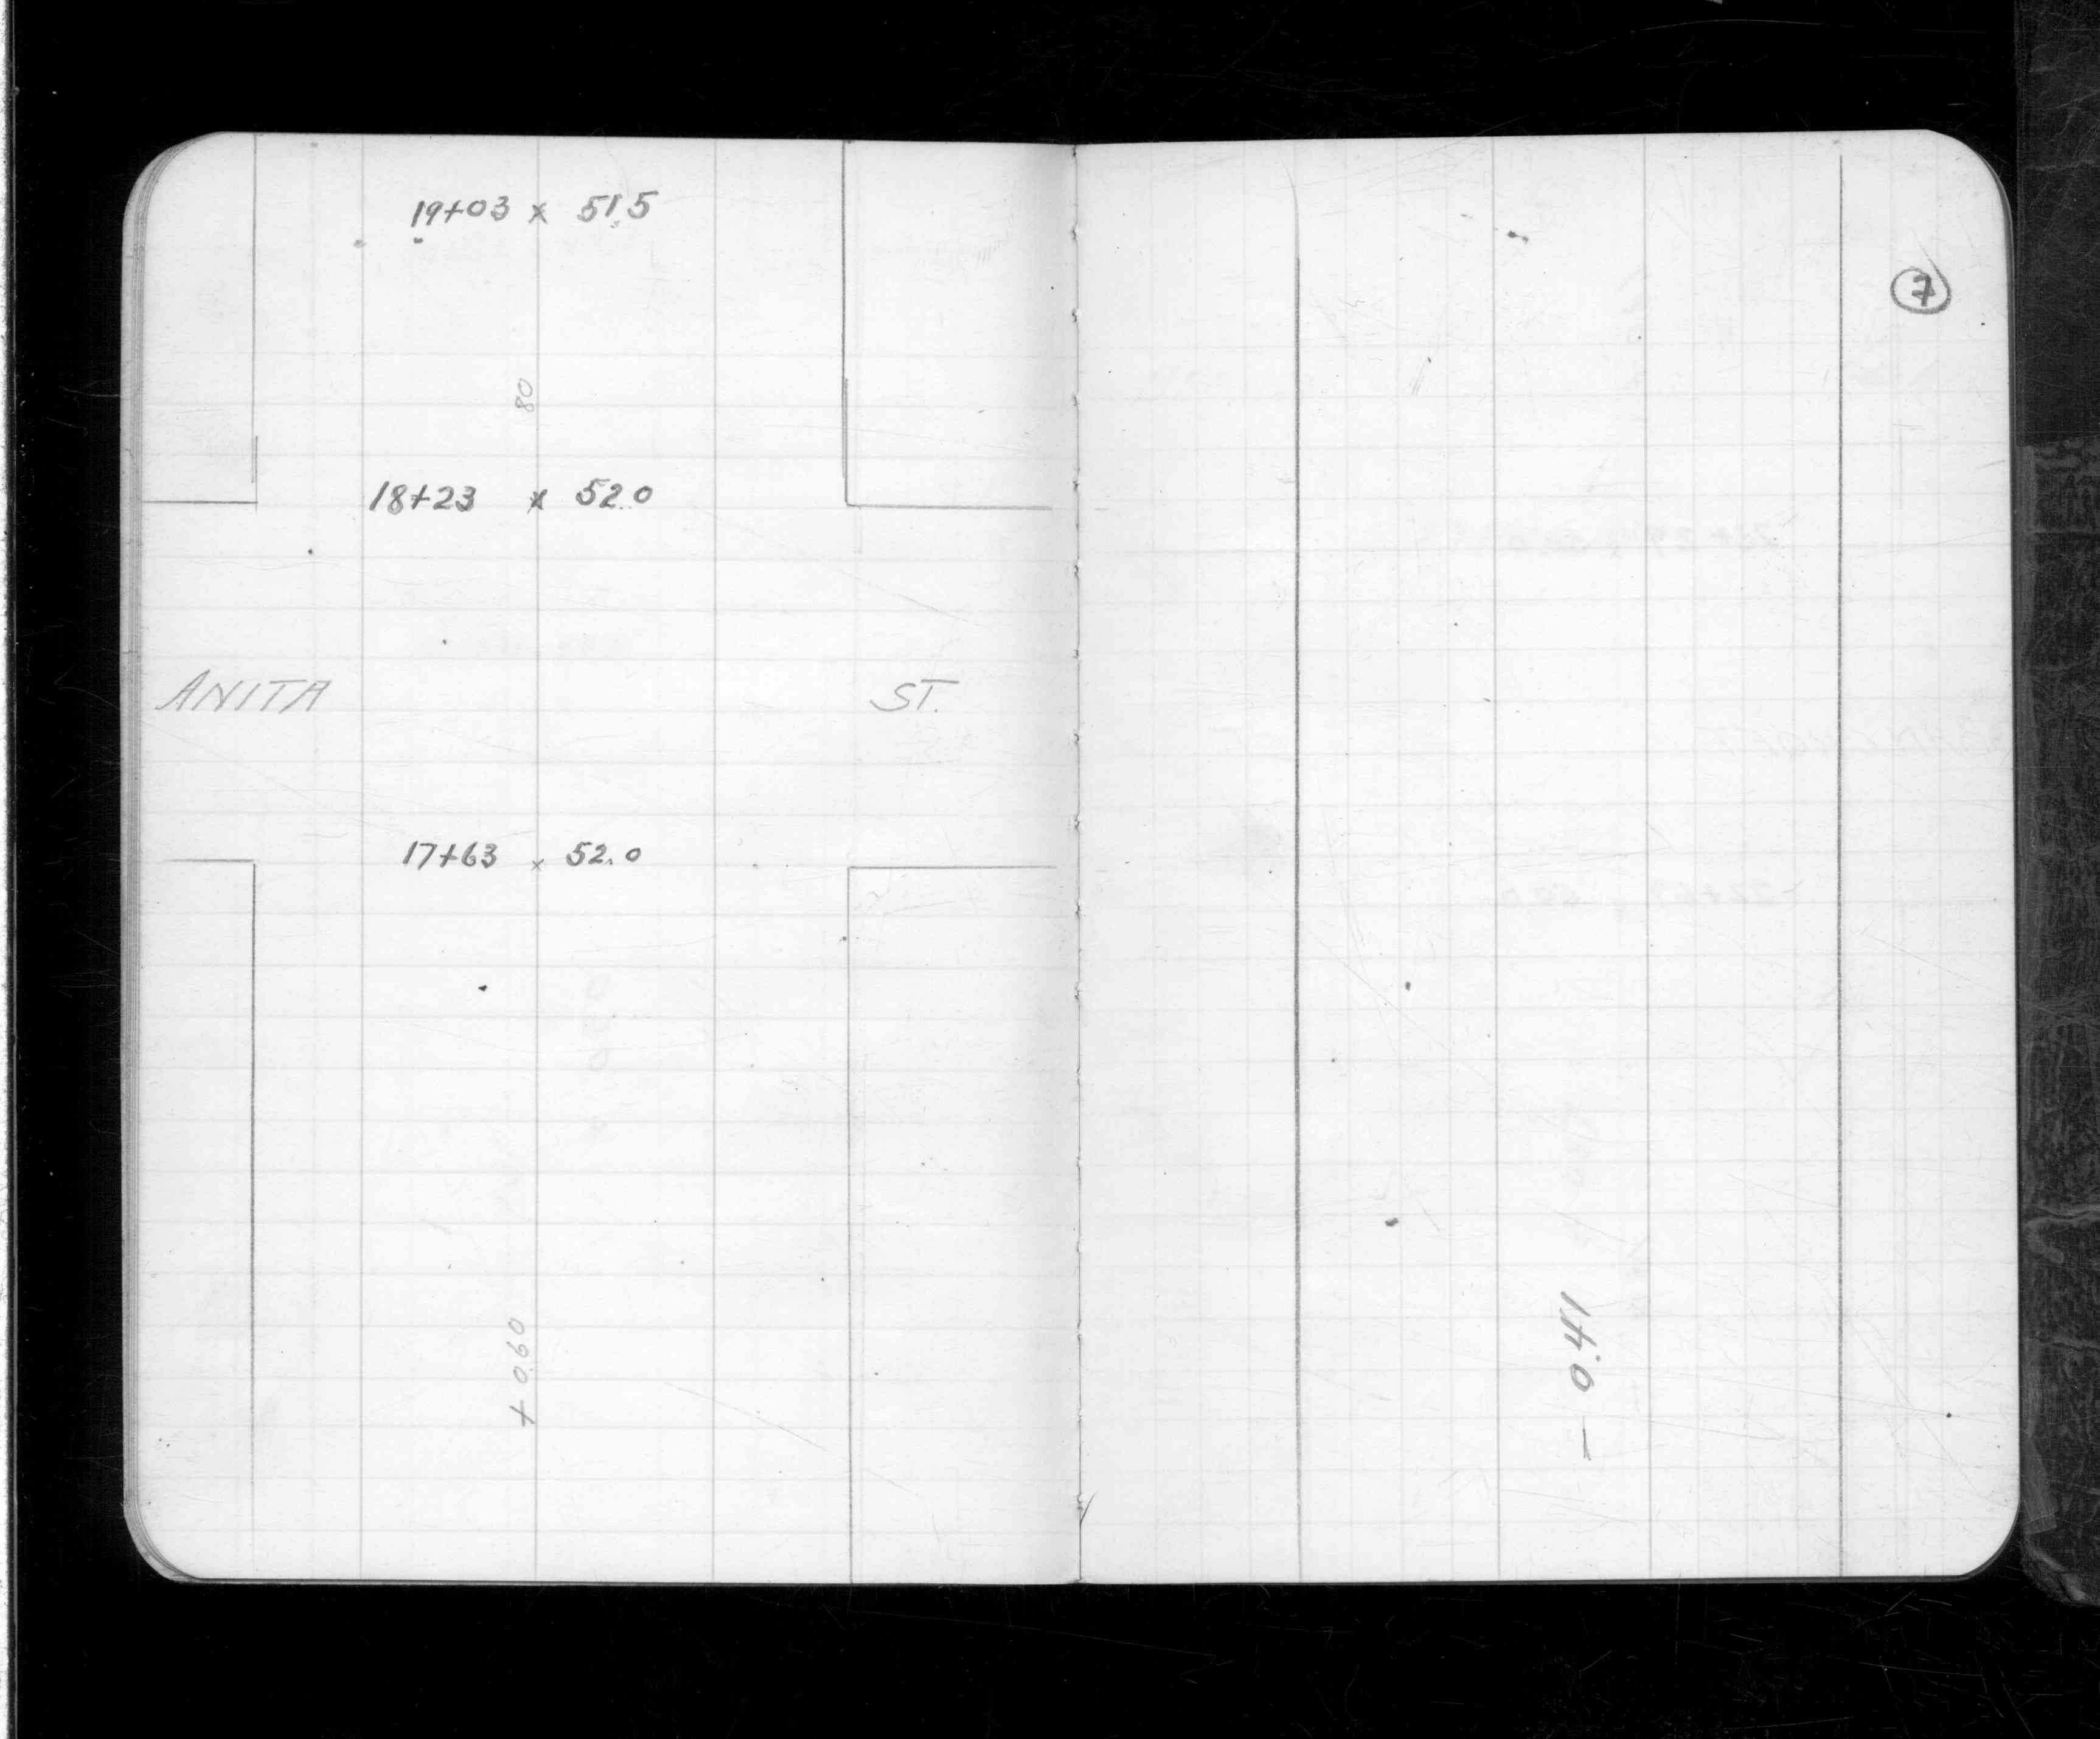 19+03 x 51.5
80
18+23 x 52.0
ANITA ST.
17+63 x 52.0
+ 0.60
7
- 0.41